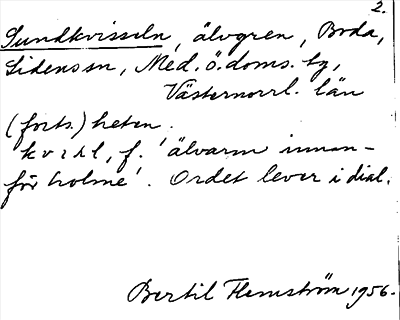 2.
Sundkvisseln, älvgren, Boda,
Lidens sn, Med. ö. doms. tg,
Västernorrl. län
(forts.) heten.
kvisl, f. 'älvarm innan-
för holme'. Ordet lever i dial.
Bertil Flemström 1956.